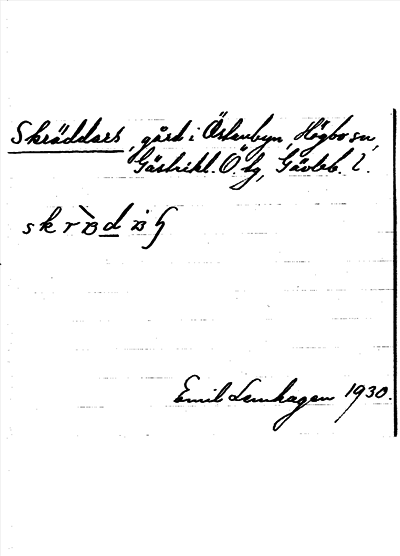 Skräddars, gård i Östanbyn, Högbo sn,
Gästrikl. Ö. tg, Gävleb. l.
Emil Lemhagen 1930.